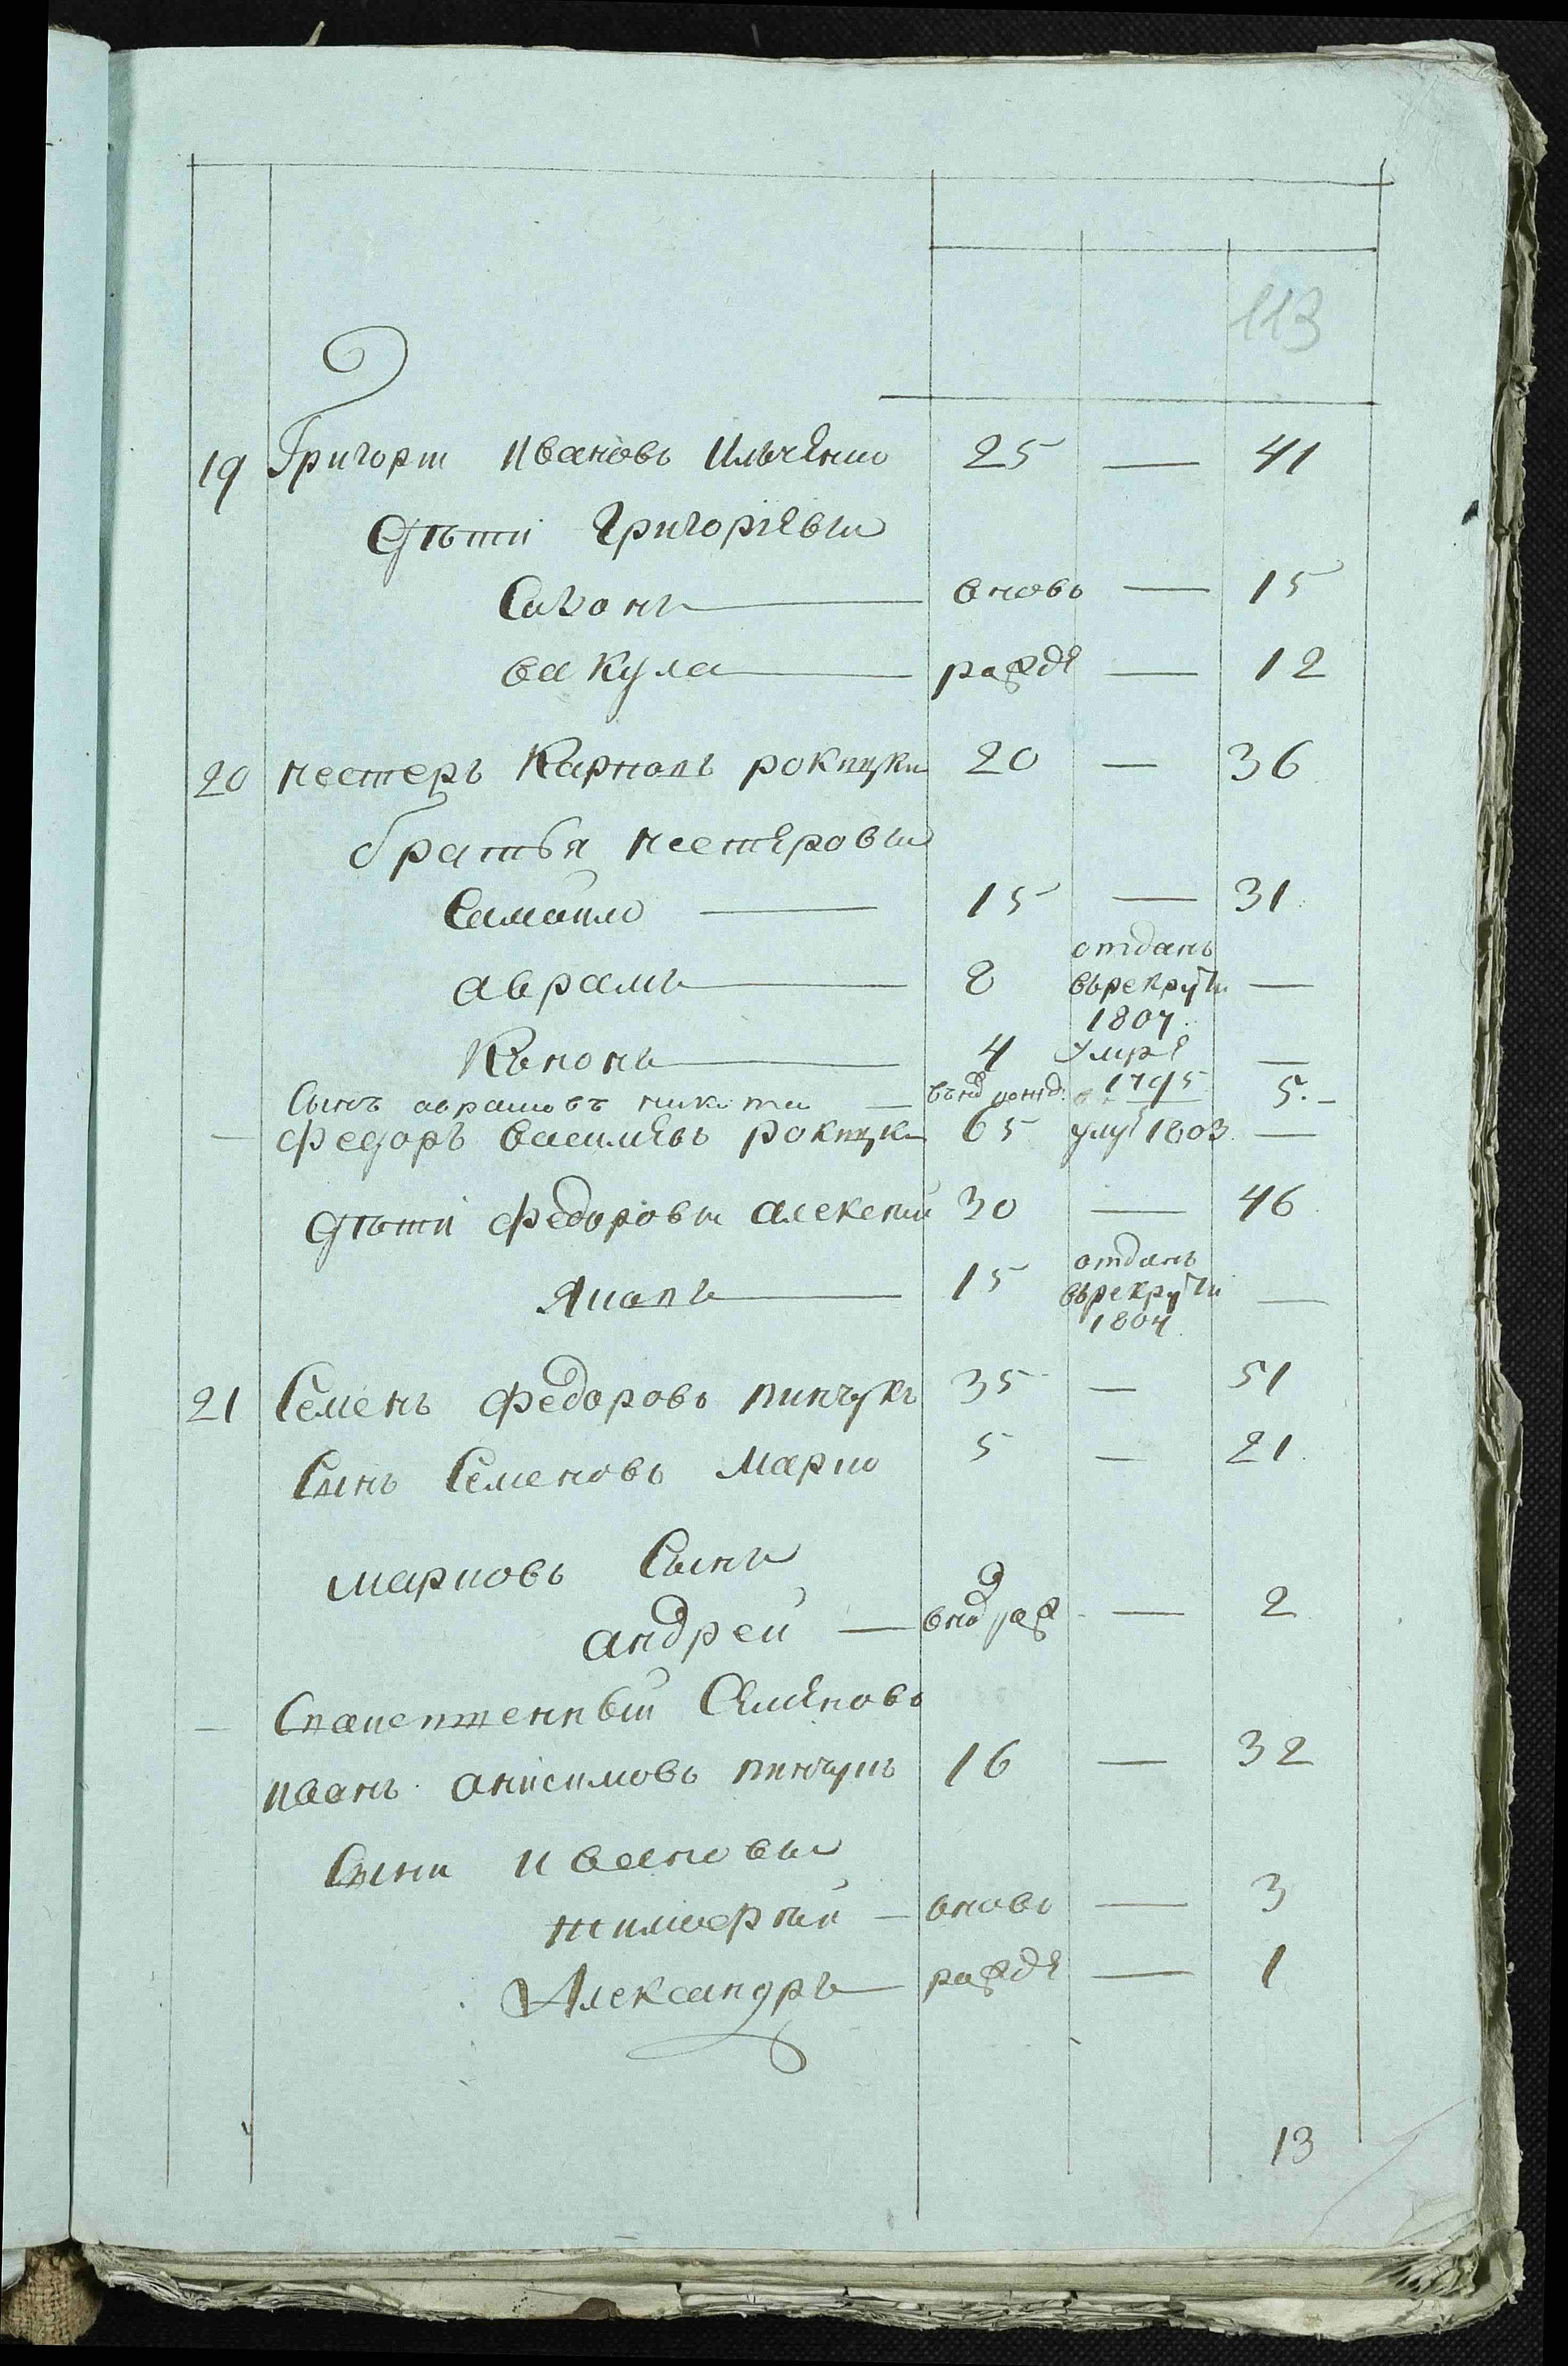 113
19 Григори Ивановъ Ильченко 25 — 41
Дѣти Григорiевы
Сазонъ вновь — 15
вакула рожде — 12
20 нестеръ Карповъ рокицки 20 — 36
братья нестеровы
Самойло — 15 — 31
аврамъ 8 отданъ въ рекруты 1804 —
Кононъ 4 умре 1795 —
Сынъ аврамовъ никита — 5. –
— федоръ василевъ рокицки 65 уме 1803 —
дѣти федоровы алексей 30 — 46
Яковъ 15 отданъ въ рекруты 1804 —
21 Семенъ федоровъ пинчукъ 35 — 51
Сынъ Семеновъ Марко 5 — 21
марковъ Сынъ
андрей — внов рож — 2
— Семеновъ
иванъ анисимовъ пинчукъ 16 — 32
Сыни ивановы
тимофѣй — вновь — 3
Александръ рожде — 1
13